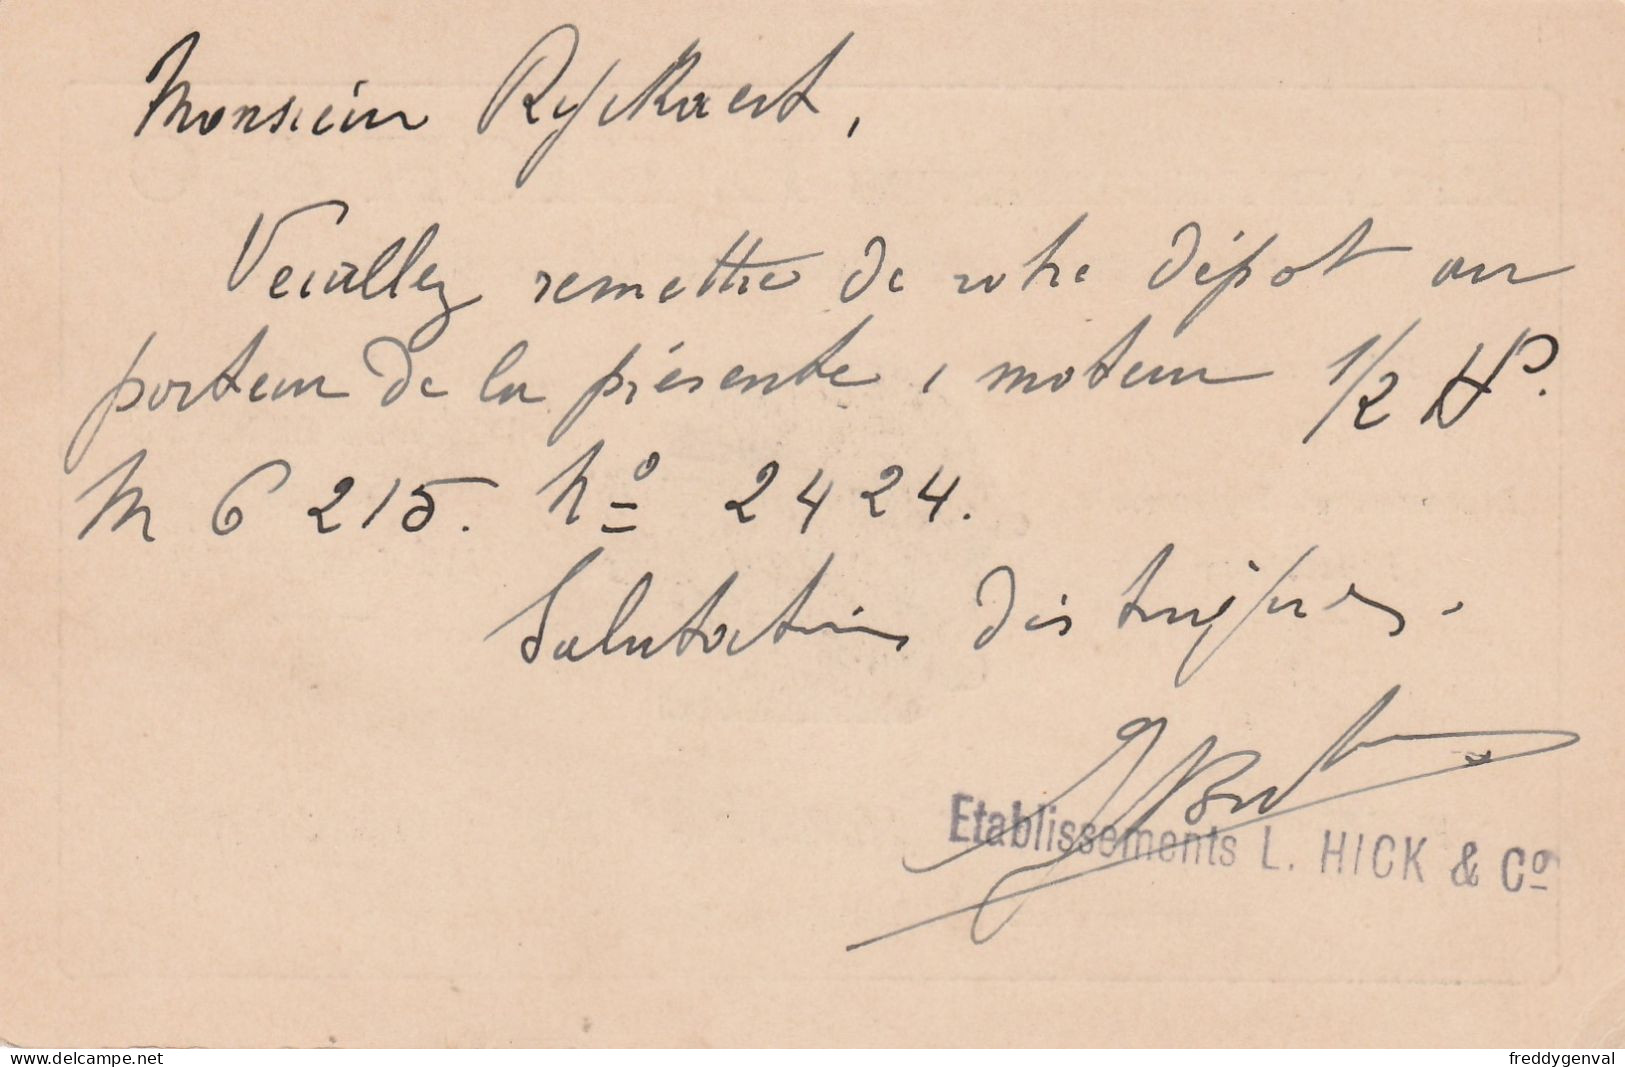 Monsieur Ryckaert,
Veuillez remettre de votre dépôt au
porteur de la présente 1 moteur 1/2 HP.
M 6 215. No 2424.
Salutations distinguées.
Etablissements L. HICK & Co
www.delcampe.net
freddygenval